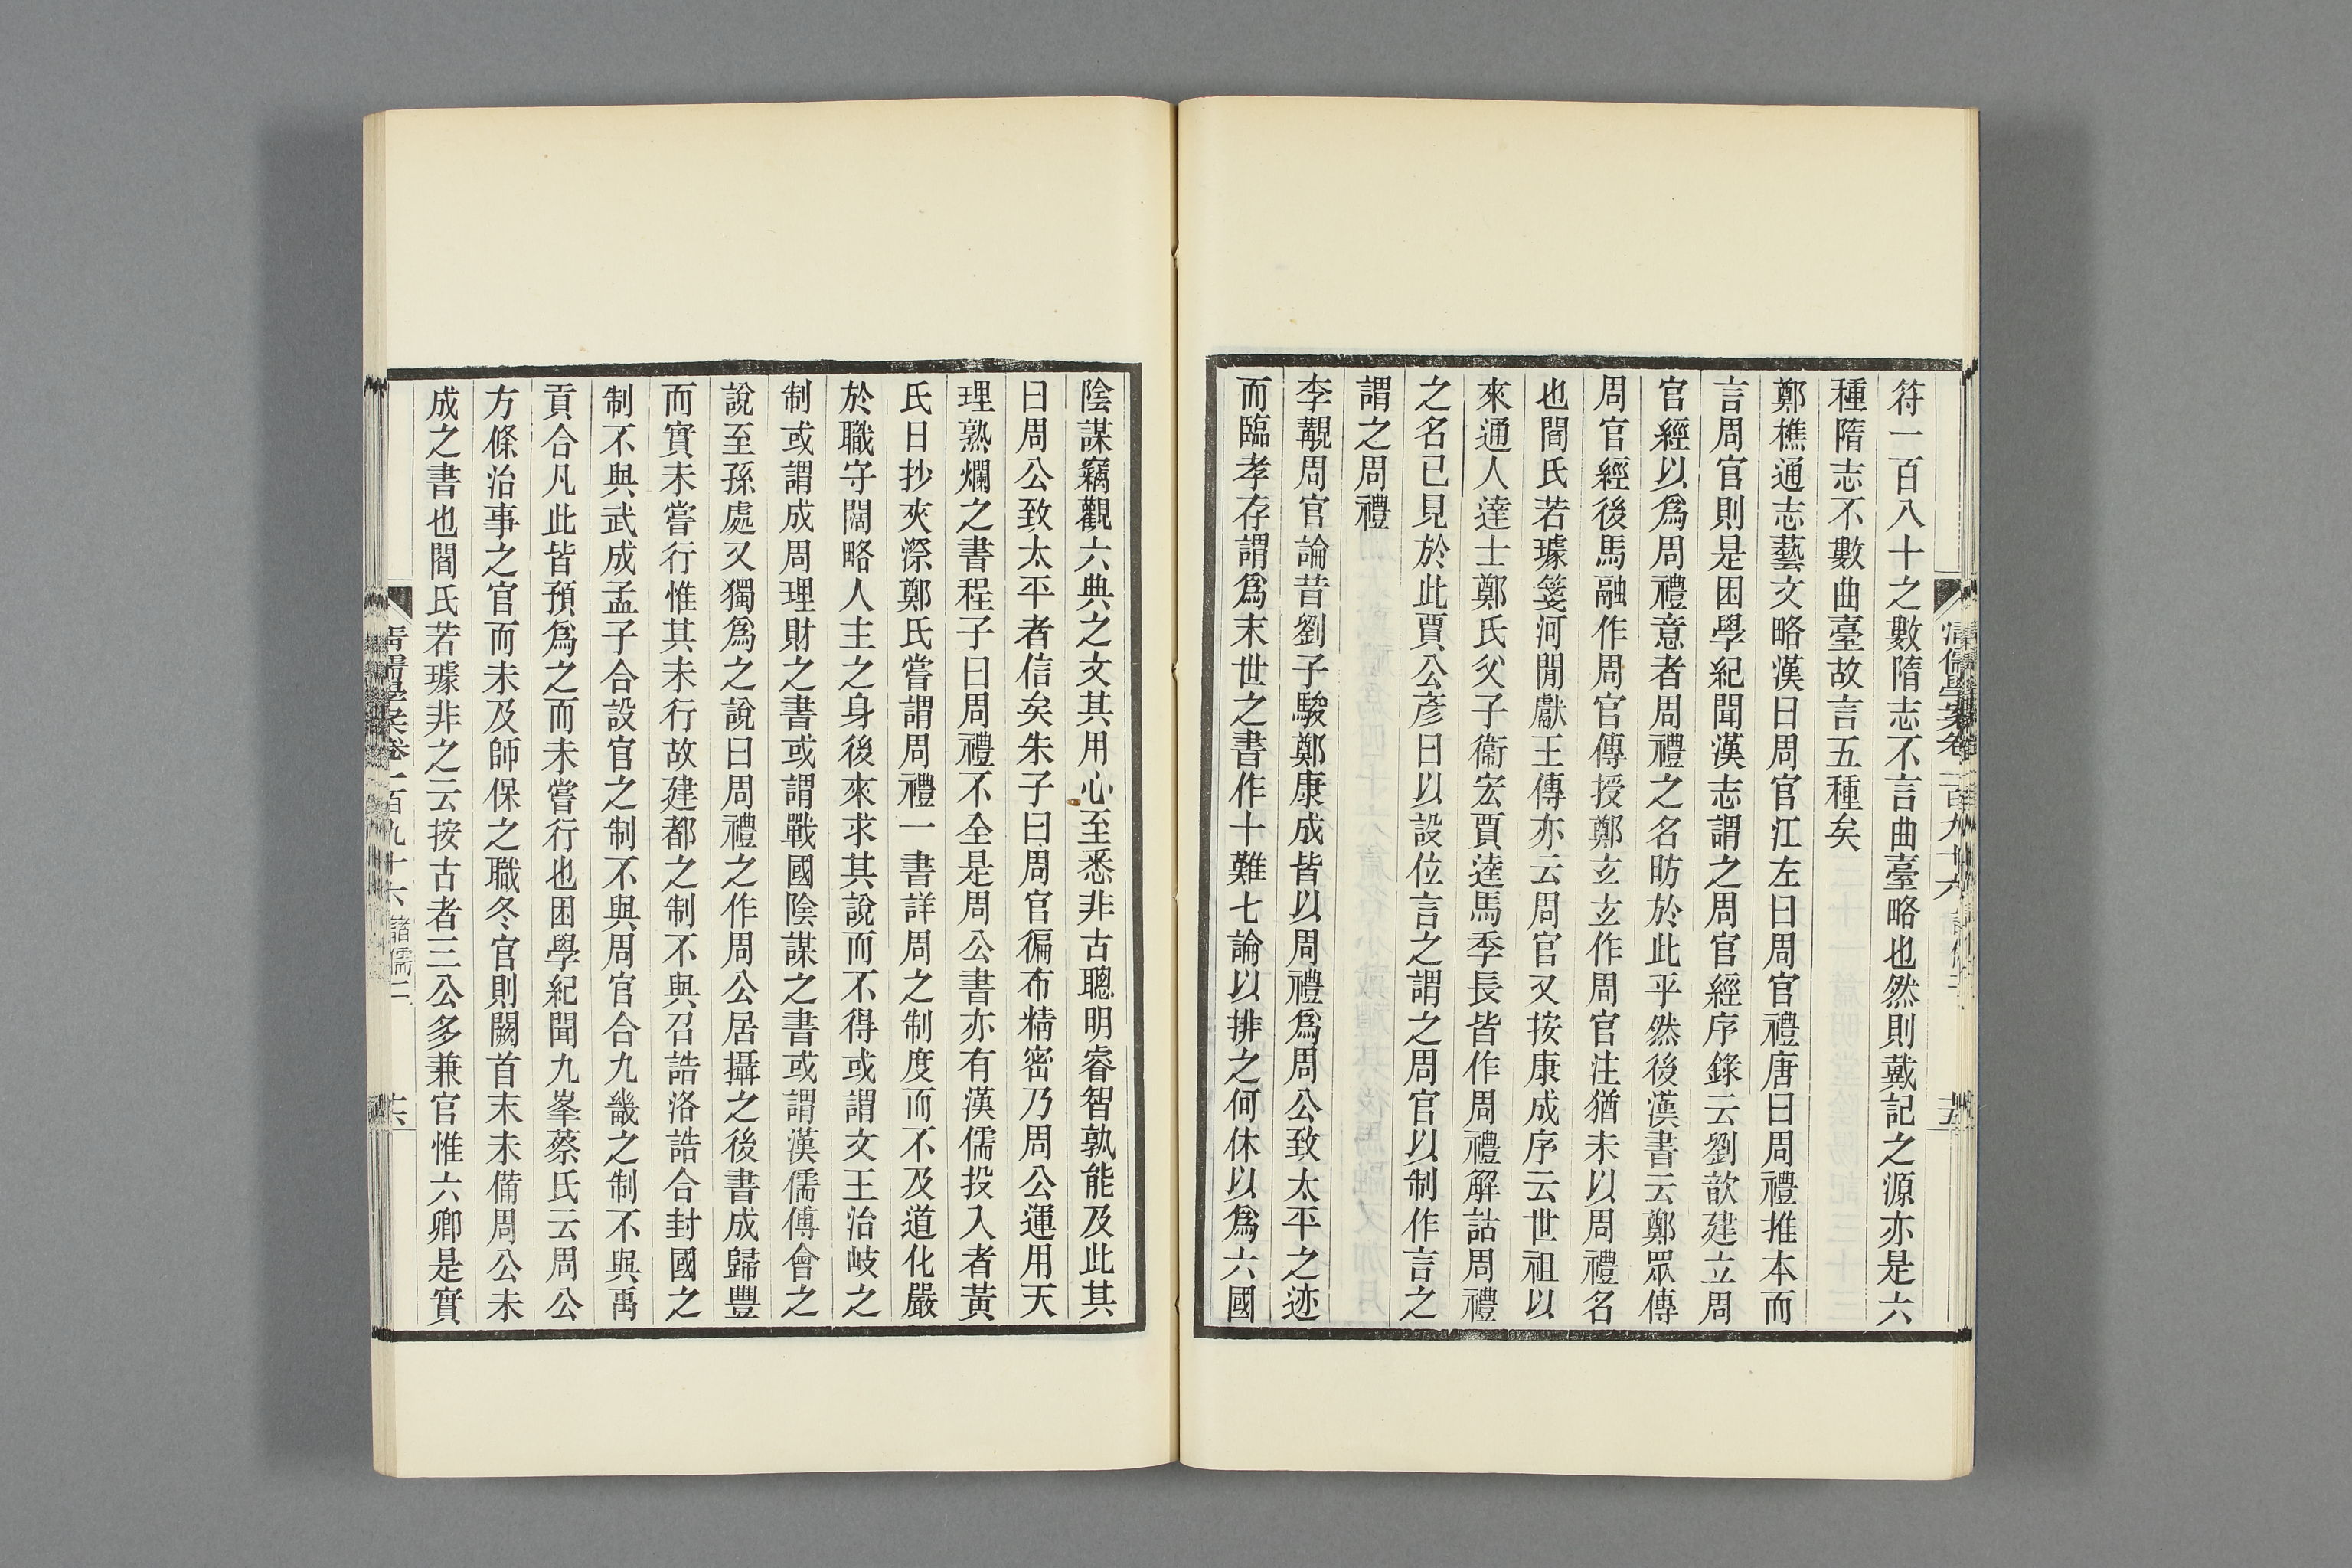 符一百八十之數隋志不言曲臺略也然則戴記之源亦是六
種隋志不數曲臺故言五種矣
鄭樵通志藝文略漢曰周官江左曰周官禮唐曰周禮推本而
言周官則是困學紀聞漢志謂之周官經序錄云劉歆建立周
官經以爲周禮意者周禮之名昉於此乎然後漢書云鄭眾傳
周官經後馬融作周官傳授鄭玄玄作周官注猶未以周禮名
也閻氏若璩箋河閒獻王傳亦云周官又按康成序云世祖以
來通人達士鄭氏父子衞宏賈逵馬季長皆作周禮解詁周禮
之名已見於此賈公彥曰以設位言之謂之周官以制作言之
謂之周禮
李覯周官論昔劉子駿鄭康成皆以周禮爲周公致太平之迹
而臨孝存謂爲末世之書作十難七論以排之何休以爲六國
陰謀竊觀六典之文其用心至悉非古聰明睿智孰能及此其
曰周公致太平者信矣朱子曰周官徧布精密乃周公運用天
理熟爛之書程子曰周禮不全是周公書亦有漢儒投入者黃
氏日抄夾漈鄭氏嘗謂周禮一書詳周之制度而不及道化嚴
於職守闊略人主之身後來求其說而不得或謂文王治岐之
制或謂成周理財之書或謂戰國陰謀之書或謂漢儒傅會之
說至孫處又獨爲之說曰周禮之作周公居攝之後書成歸豐
而實未嘗行惟其未行故建都之制不與召誥洛誥合封國之
制不與武成孟子合設官之制不與周官合九畿之制不與禹
貢合凡此皆預爲之而未嘗行也困學紀聞九峯蔡氏云周公
方條治事之官而未及師保之職冬官則闕首末未備周公未
成之書也閻氏若璩非之云按古者三公多兼官惟六卿是實
清儒學案卷一百九十六 諸儒二
十六